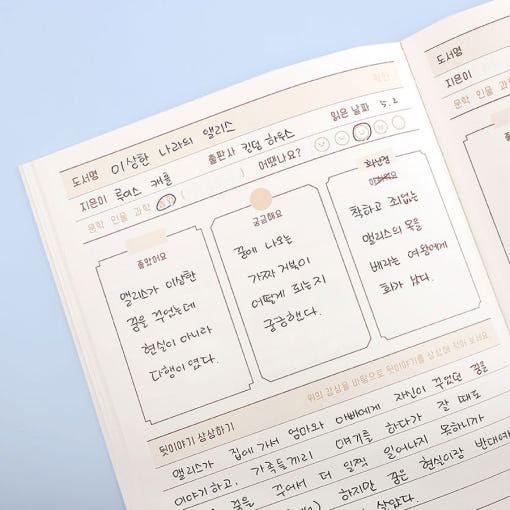 확인
도서명 이상한 나라의 앨리스
지은이 루이스 캐롤 출판사 킹덤 하우스 읽은 날짜 5.2
문학 인물 과학 ( ) 어땠나요?
좋았어요
앨리스가 이상한
꿈을 꾸었는데
현실이 아니라
다행이 였다.
궁금해요
꿈에 나오는
가짜 거북이
어떻게 되는지
궁금했다.
화난점
착하고 죄없는
앨리스의 목을
베라는 여왕에게
화가 났다.
위의 감상을 바탕으로 뒷이야기를 상상해 적어 보세요.
뒷이야기 상상하기
앨리스가 집에 가서 엄마와 아빠에게 자신이 꾸었던 꿈을
이야기하고, 가족들끼리 얘기를 하다가 잘 때도
꿈을 꾸어서 더 일찍 일어나지 못하니까
하지만 꿈은 현실이랑 반대여
살았다.
도서명
지은이
문학 인물 과학